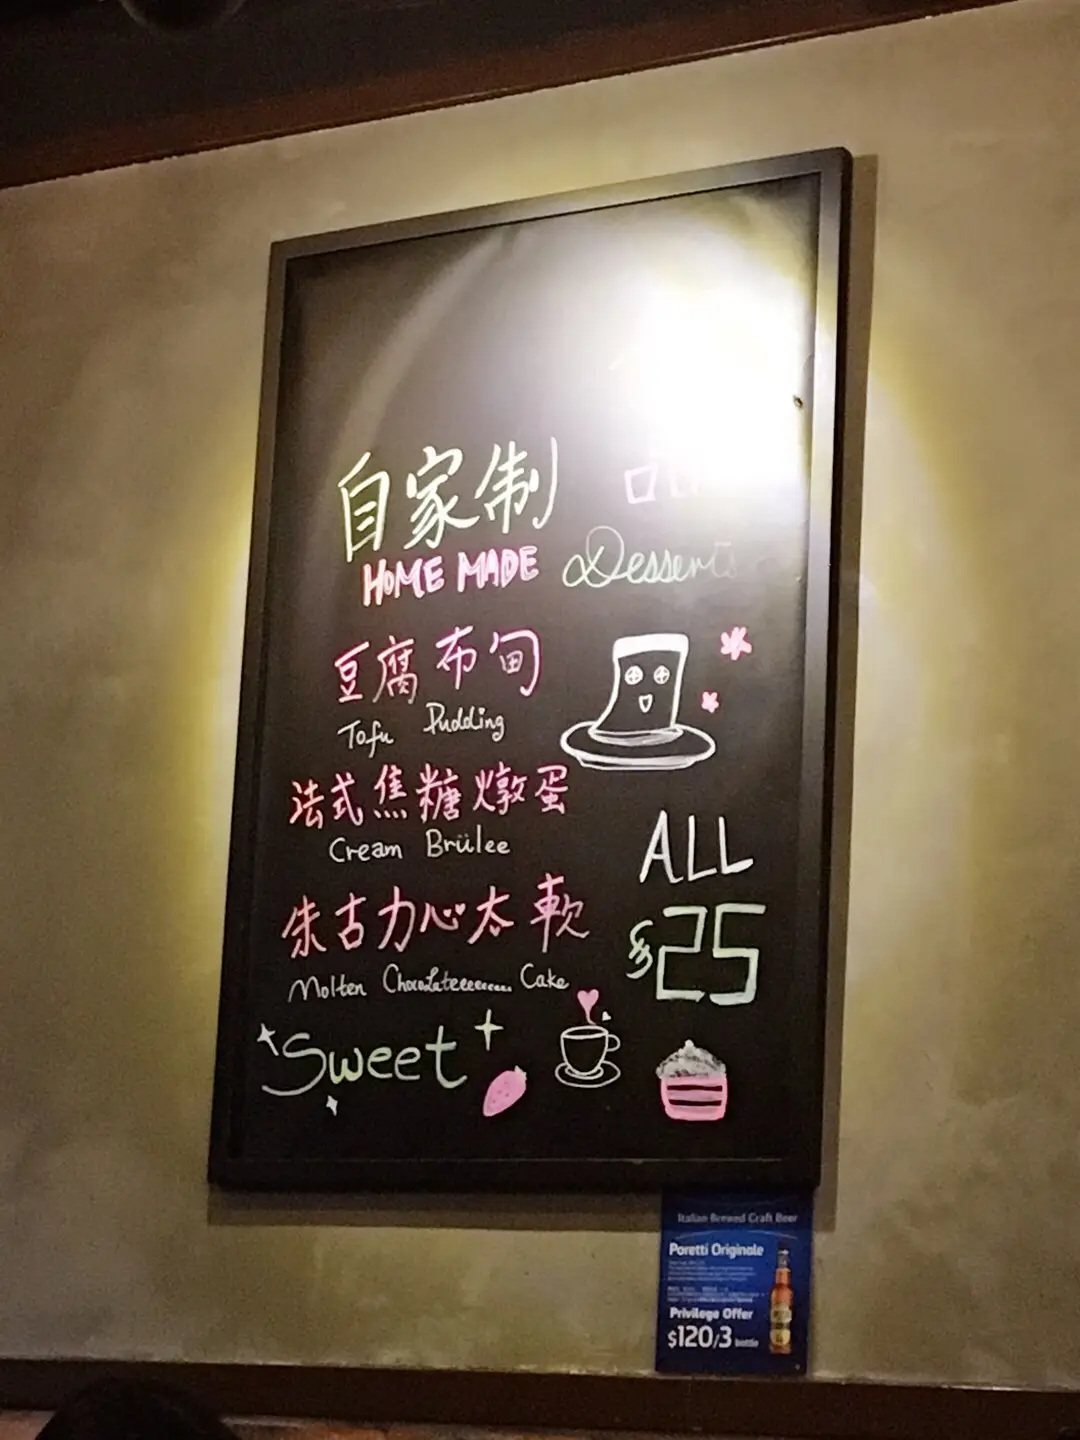 自家製
HOME MADE Desserts
豆腐布甸
Tofu Pudding
法式焦糖燉蛋
Cream Brülee
朱古力心太軟
Molten Chocolateeeeeeee.... Cake
ALL
$25
Sweet
Italian Brewed Craft Beer
Poretti Originale
Privilege Offer
$120/3 bottle